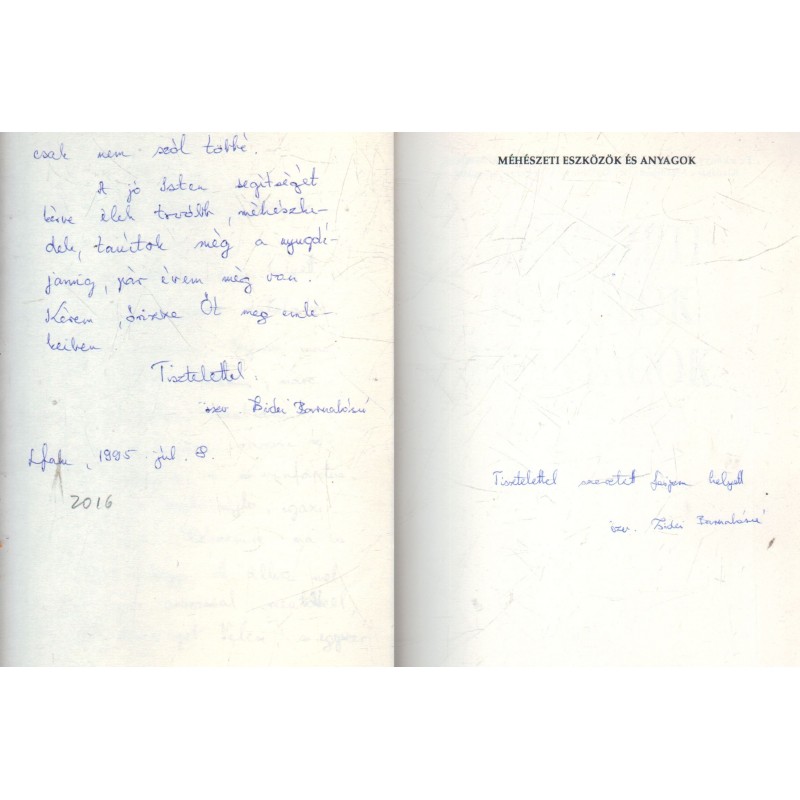 csak nem szól többé.
A jó Isten segítségét
kérve élek tovább, méhészke-
dek, tanítok még a nyugdí-
jamig, pár évem még van.
Kérem, őrizze Őt meg emlé-
keiben
Tisztelettel.
özv. Zsidei Barnabásné
1995 júl. 8.
2016
MÉHÉSZETI ESZKÖZÖK ÉS ANYAGOK
Tisztelettel szeretett férjem helyett
özv. Zsidei Barnabásné